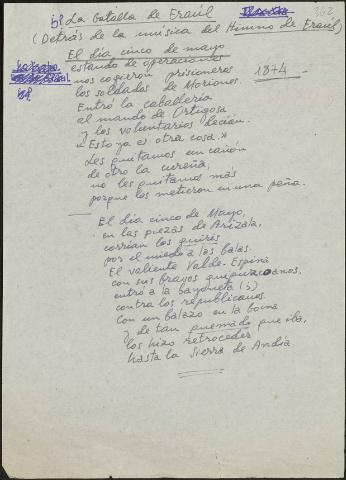 5º La Batalla de Eraúl
(Detrás de la música del Himno de Eraúl)
El día cinco de mayo
estando de operaciones
nos cogieron prisioneros
los soldados de Moriones. 1874
Entró la caballería
al mando de Ortigosa
y los voluntarios decían.
"Esto ya es otra cosa."
Les quitamos un cañón
de otro la cureña,
no les quitamos más
porque los metieron en una peña.
El día cinco de Mayo,
en las piezas de Arizala,
corrían los guiris
por el miedo a las balas.
El valiente Valde-Espina
con sus bravos guipuzcoanos.
entró a la bayoneta
contra los republicanos.
Con un balazo en la boina
y de tan quemado que iba,
los hizo retroceder
hasta la Sierra de Andía